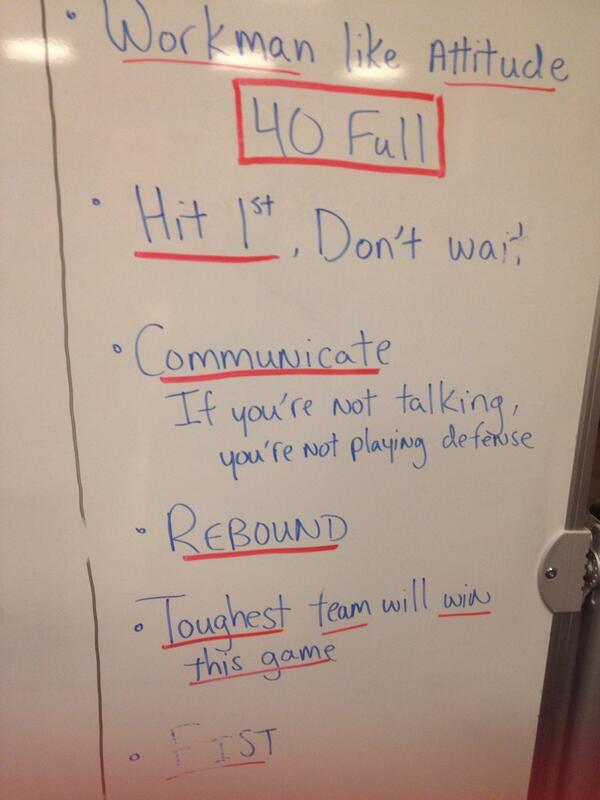 • Workman like Attitude
40 Full
• Hit 1st, Don't wait
• Communicate
If you're not talking,
you're not playing defense
• REBOUND
• Toughest team will win
this game
• FIST